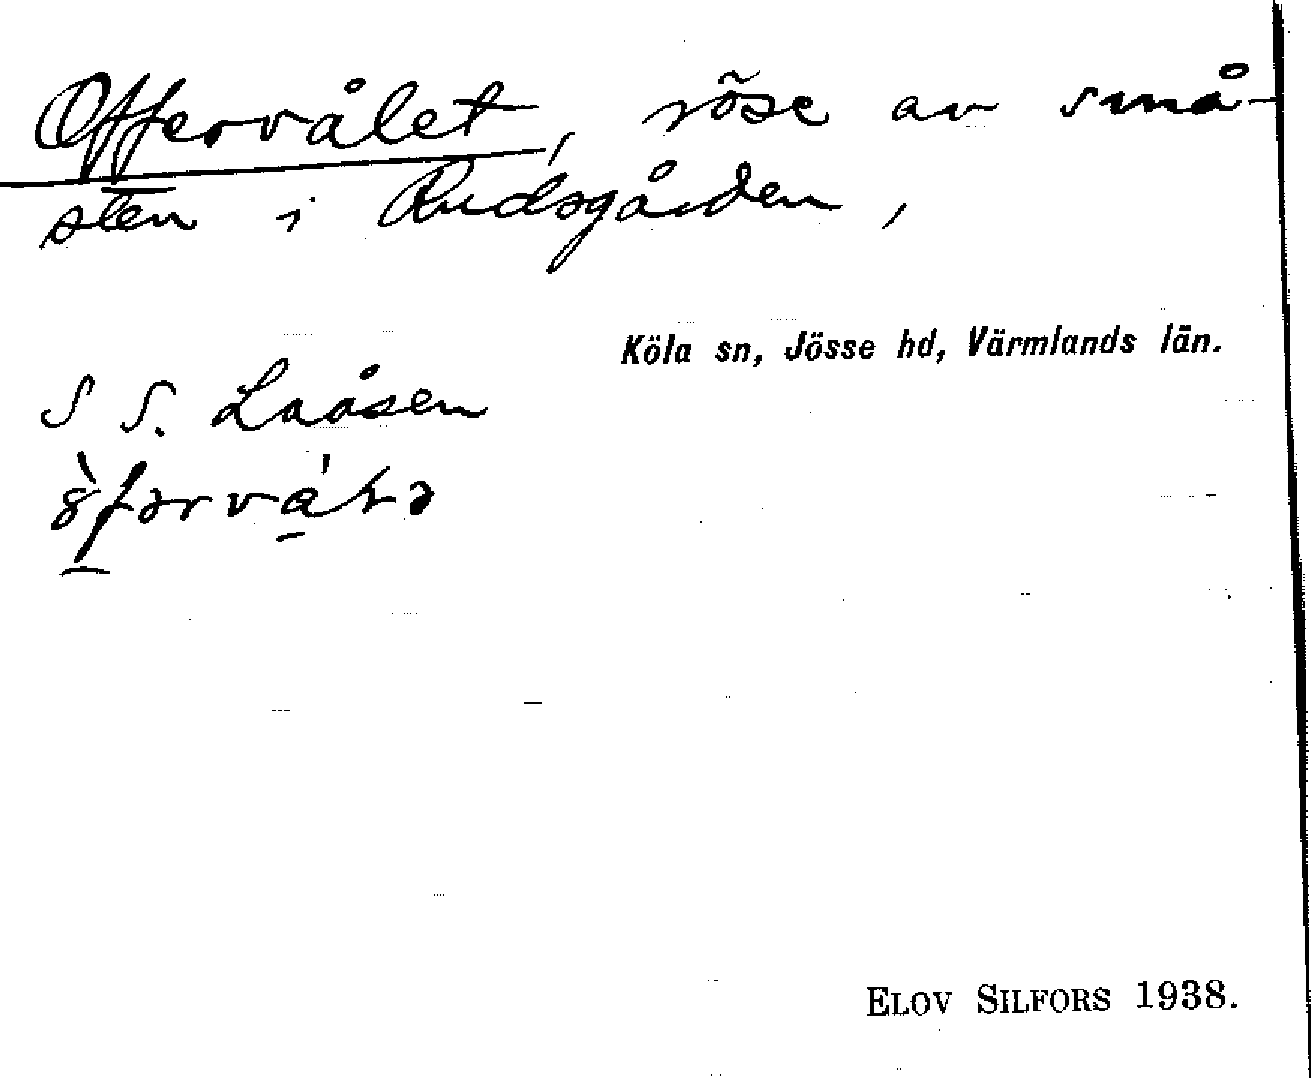 Offervålet, röse av små-
sten i Rudsgården,
Köla sn, Jösse hd, Värmlands län.
S S. Laåsen
ELOV SILFORS 1938.